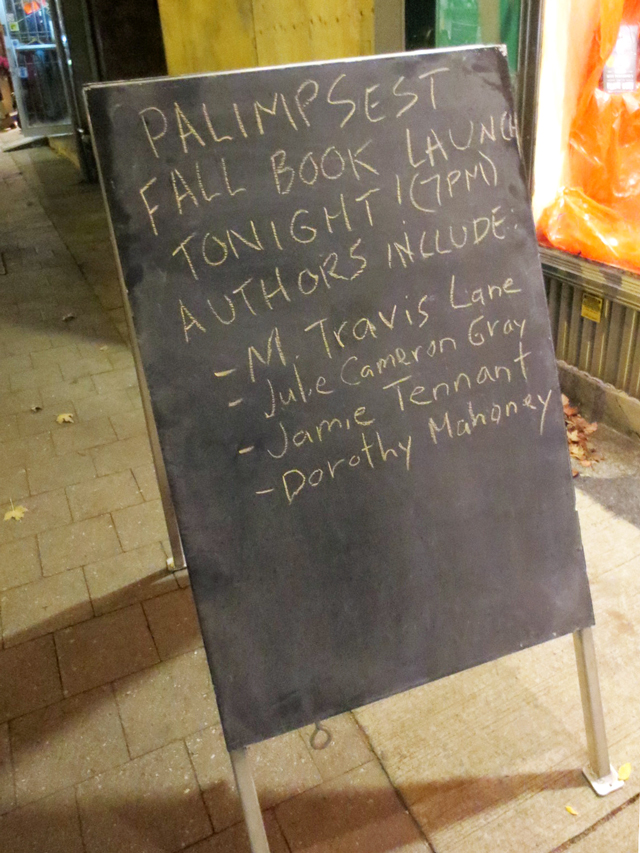 PALIMPSEST
FALL BOOK LAUNCH
TONIGHT! (7PM)
AUTHORS INCLUDE:
- M. Travis Lane
- Julie Cameron Gray
- Jamie Tennant
- Dorothy Mahoney